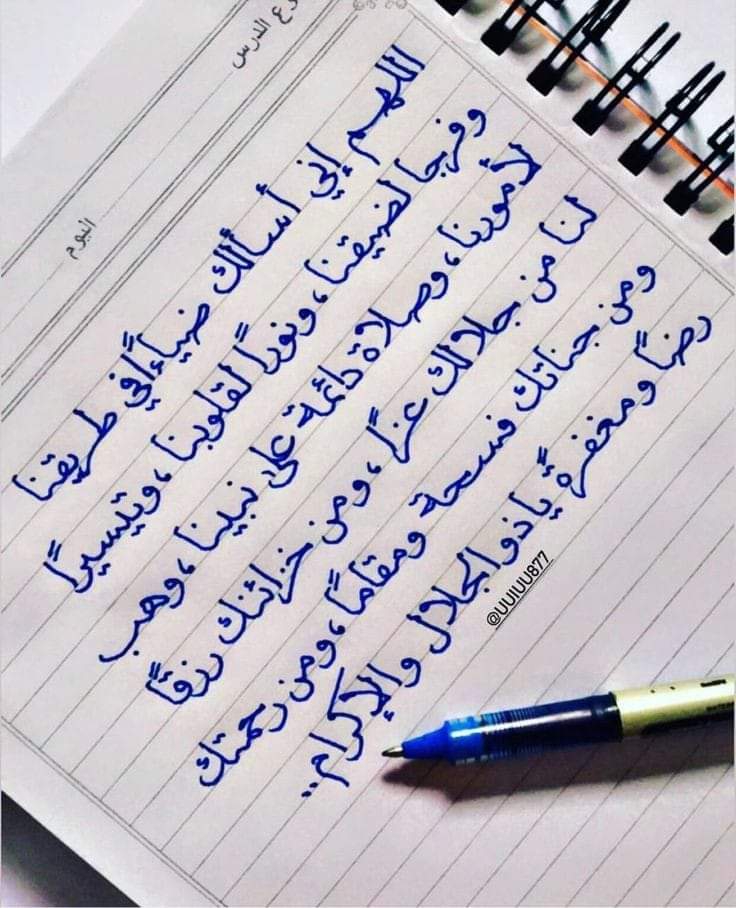 موضوع الدرس
اليوم
اللهم إني أسألك ضياءاً في طريقنا
وفرجا لضيقتنا، ونوراً لقلوبنا، وتيسيراً
لأمورنا، وصلاة دائمة على نبينا، وهب
لنا من جلالك عزاً، ومن خزائنك رزقاً
ومن جناتك فسحة ومقاماً، ومن رحمتك
رضاً ومغفرةً يا ذو الجلال والإكرام..
@UUIUU877